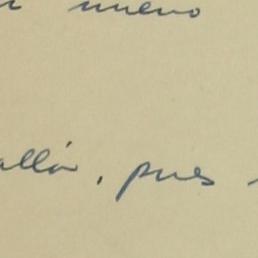 nuevo
allá, pues